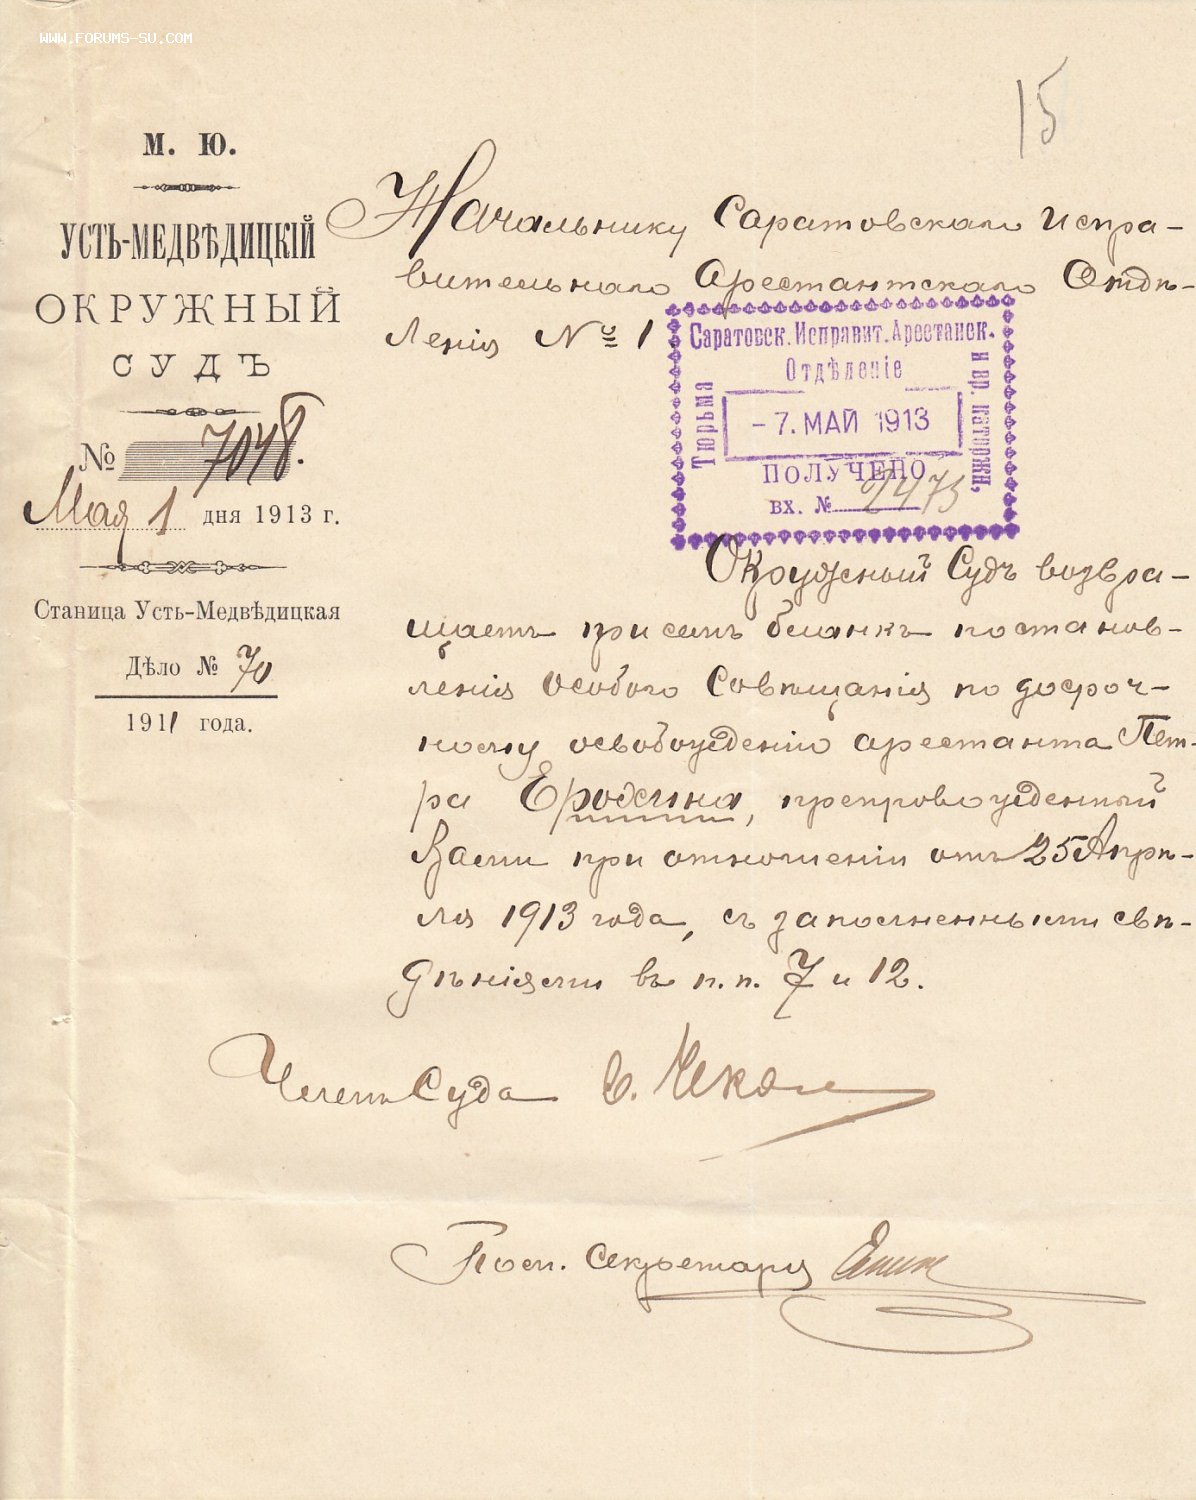 WWW.FORUMS-SU.COM
15
М. Ю.
УСТЬ-МЕДВѢДИЦКІЙ
ОКРУЖНЫЙ
СУДЪ
№ 7048.
Мая 1 дня 1913 г.
Станица Усть-Медвѣдицкая
Дѣло № 70
1911 года.
Начальнику Саратовскаго Испра-
вительнаго Арестантскаго Отдѣ-
ленія № 1
Саратовск. Исправит. Арестанск.
Отдѣленіе
Тюрьма
и вр. каторжн.
- 7. МАЙ 1913
ПОЛУЧЕНО
вх. № 2473
Окружный Судъ возвра-
щаетъ при семъ бланкъ постанов-
ленія Особого Совѣщанія по досроч-
ному освобожденію арестанта Пет-
ра Ерохина, препровожденный
Вами при отношеніи отъ 25 Апрѣ-
ля 1913 года, съ заполненными свѣ-
дѣніями въ п.п. 7 и 12.
Членъ Суда
Пом. Секретаря